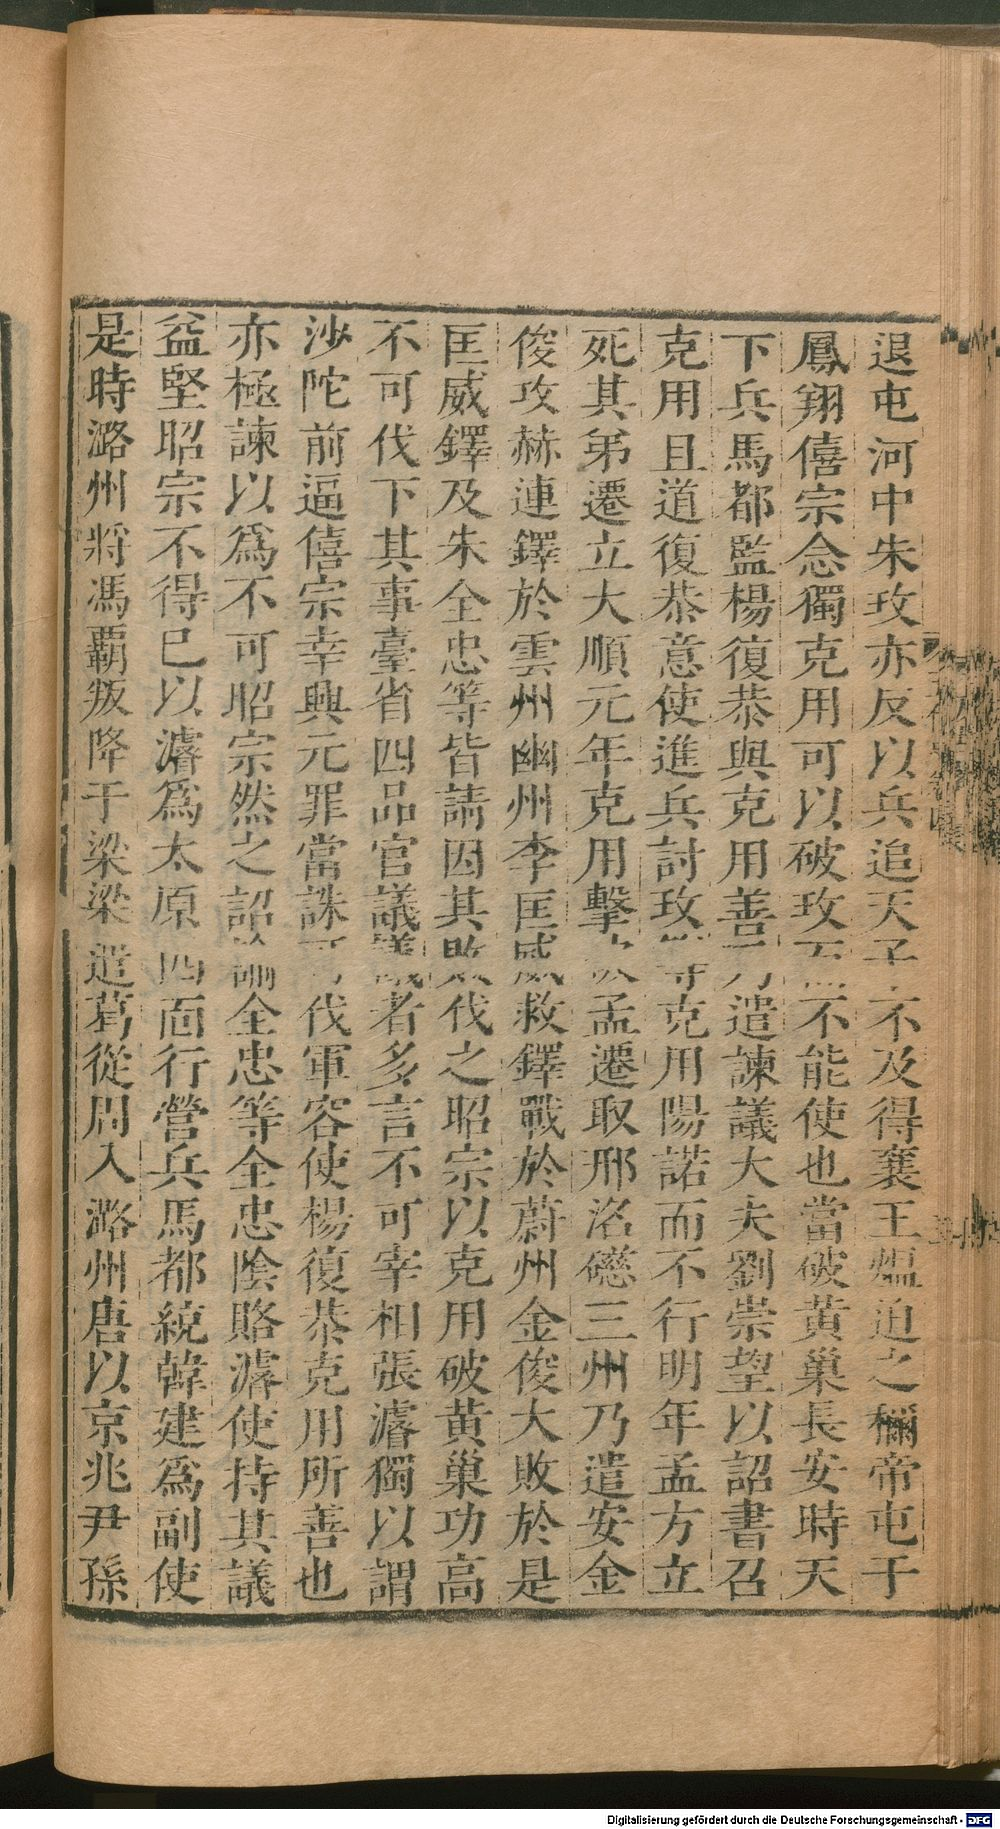 退屯河中朱玫亦反以兵追天子不及得襄王熅迫之稱帝屯于
鳳翔僖宗念獨克用可以破玫不能使也當破黃巢長安時天
下兵馬都監楊復恭與克用善乃遣諫議大夫劉崇望以詔書召
克用且道復恭意使進兵討玫等克用陽諾而不行明年孟方立
死其弟遷立大順元年克用擊孟遷取邢洺磁三州乃遣安金
俊攻赫連鐸於雲州幽州李匡威救鐸戰於蔚州金俊大敗於是
匡威鐸及朱全忠等皆請因其敗伐之昭宗以克用破黃巢功高
不可伐下其事臺省四品官議議者多言不可宰相張濬獨以謂
沙陀前逼僖宗幸興元罪當誅可伐軍容使楊復恭克用所善也
亦極諫以爲不可昭宗然之詔諭全忠等全忠陰賂濬使持其議
益堅昭宗不得已以濬爲太原四面行營兵馬都統韓建爲副使
是時潞州將馮覇叛降于梁梁遣葛從周入潞州唐以京兆尹孫
Digitalisierung gefördert durch die Deutsche Forschungsgemeinschaft - DFG